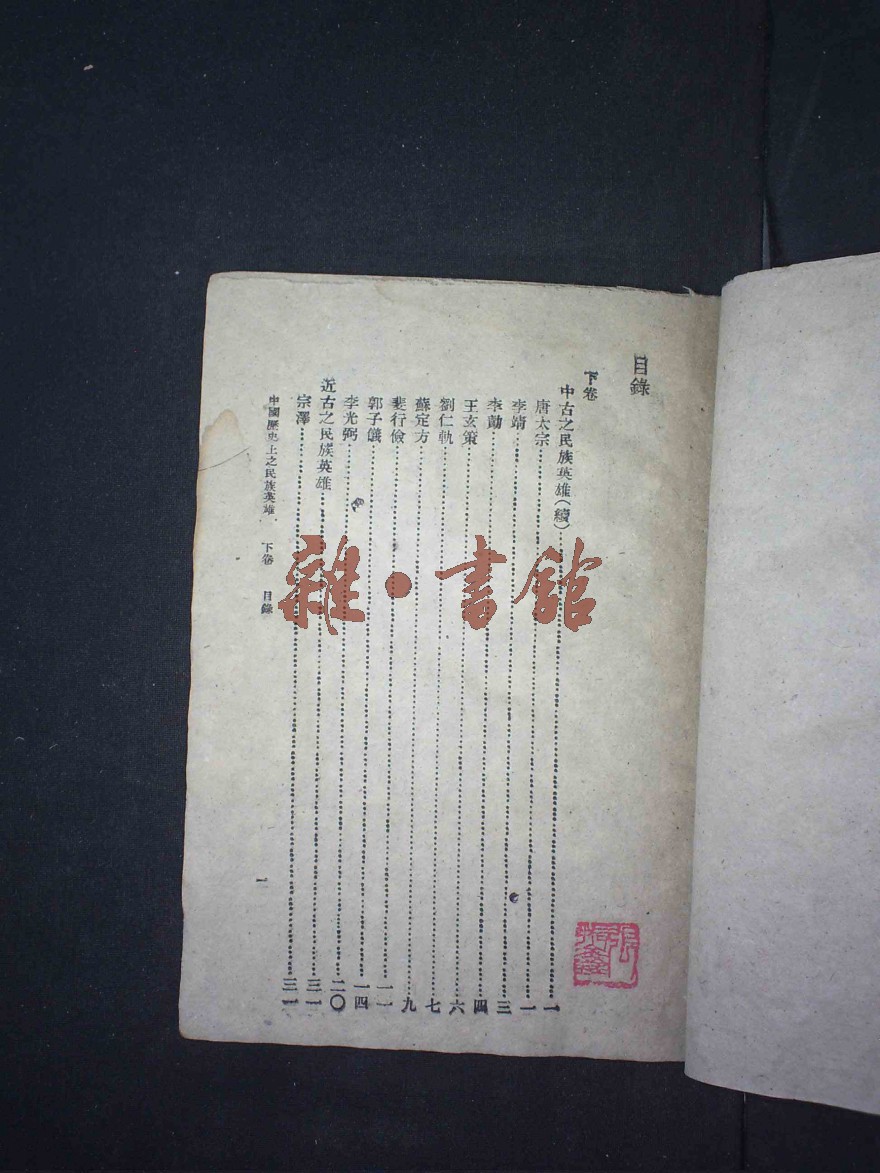 目錄
下卷
中古之民族英雄(續)……一
唐太宗……一
李靖……三
李勣……四
王玄策……六
劉仁軌……七
蘇定方……九
斐行儉……一一
郭子儀……一四
李光弼……二〇
近古之民族英雄……三一
宗澤……三一
中國歷史上之民族英雄 下卷 目錄 一
雜·書館